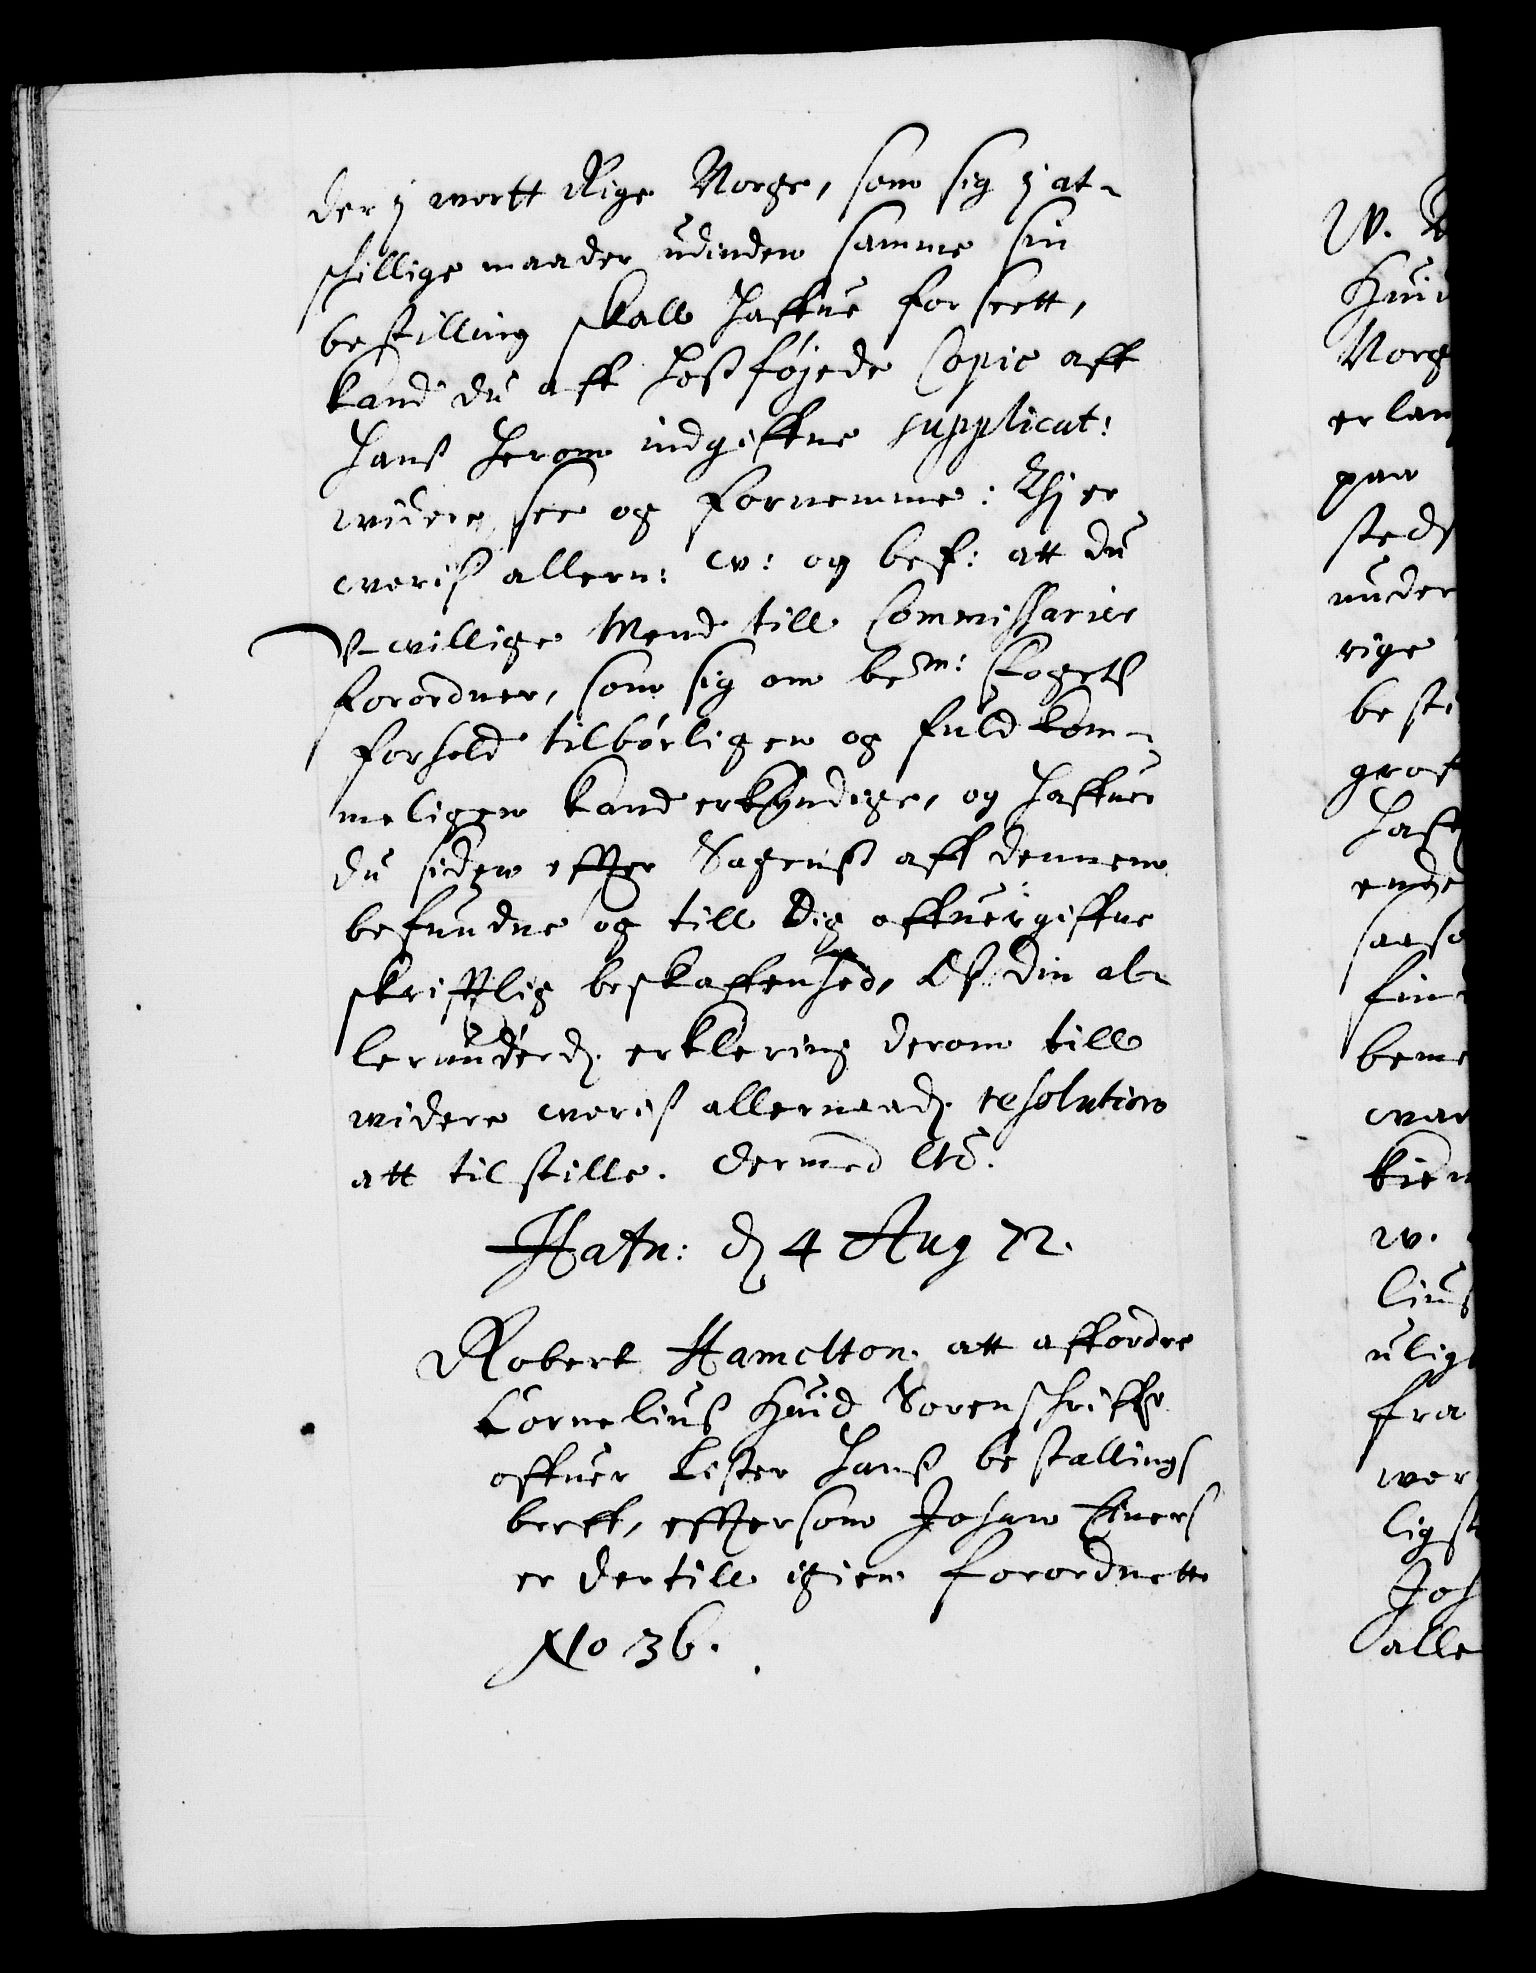 der j wortt Rige Norge, som sig j at-
skillige maader udinden samme sin
bestilling skall haffue forseett,
kand du aff hosføjede Copie aff
hans herom indgiffne supplicat:
widere see og fornemme: Thj er
woris allern: w: og bef: att du
U-willige Mend till Commissarier
forordner, som sig om bem: fogets
forhold tilbørligen og fuldkom-
meligen kand erkyndige, og haffuer
du siden effter Sagens aff dennem
befundne og till dig offuergiffne
skrifftlig beskaffenhed, Os din al-
lerunderd. erklering derom till
widere woris allernaad. resolution
att tilstille. dermed etc.
Hafn: d 4 Aug 72.
Robert Hamelton att affordre
Cornelius Huid Sorenschriffr
offuer Lister hans bestallings
breff, efftersom Johan Ewers
er dertill igien forordnett
No 36.
W. R
Huid
Norg
erlan
paa
steds
under
rige
besti
graf
haff
ende
saaso
fin
beme
war
kien
w.
lius
ulig
fra
wor
ligst
Joh
alle